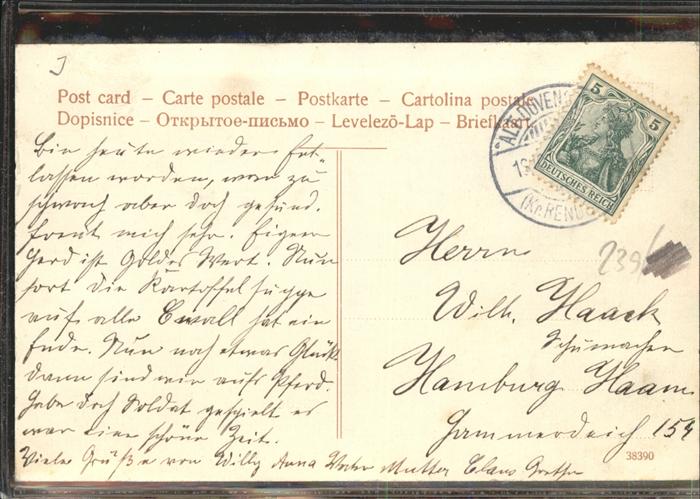 Post card – Carte postale – Postkarte – Cartolina postale
Dopisnice – Открытое-письмо – Levelezõ-Lap – Briefkaart
Bin heute wieder Ent-
lassen worden, war zu
schwach aber doch gesund.
freut mich sehr. Eigener
Herd ist Goldes Wert. Nun
hört die Kartoffelsuppe
auf. alle Ewall hat ein
Ende. Nun noch etwas Glück
dann sind wir aufs Pferd.
Habe doch Soldat gespielt es
war eine schöne Zeit.
Viele Grüße von Willy Anna Vater Mutter Claus
5 5
DEUTSCHES REICH
(Kr. REND
Herrn
Wilh. Haack
Schumacher
Hamburg Haam
Hammerdeich 154
239
38390